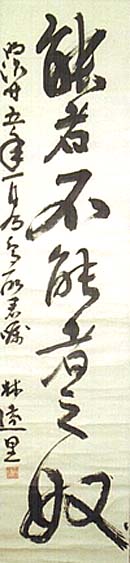 能者不能者之奴
明治廿五年一月為
林遠里